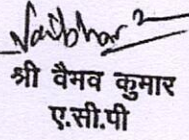 Vaibhav
श्री वैभव कुमार
ए.सी.पी